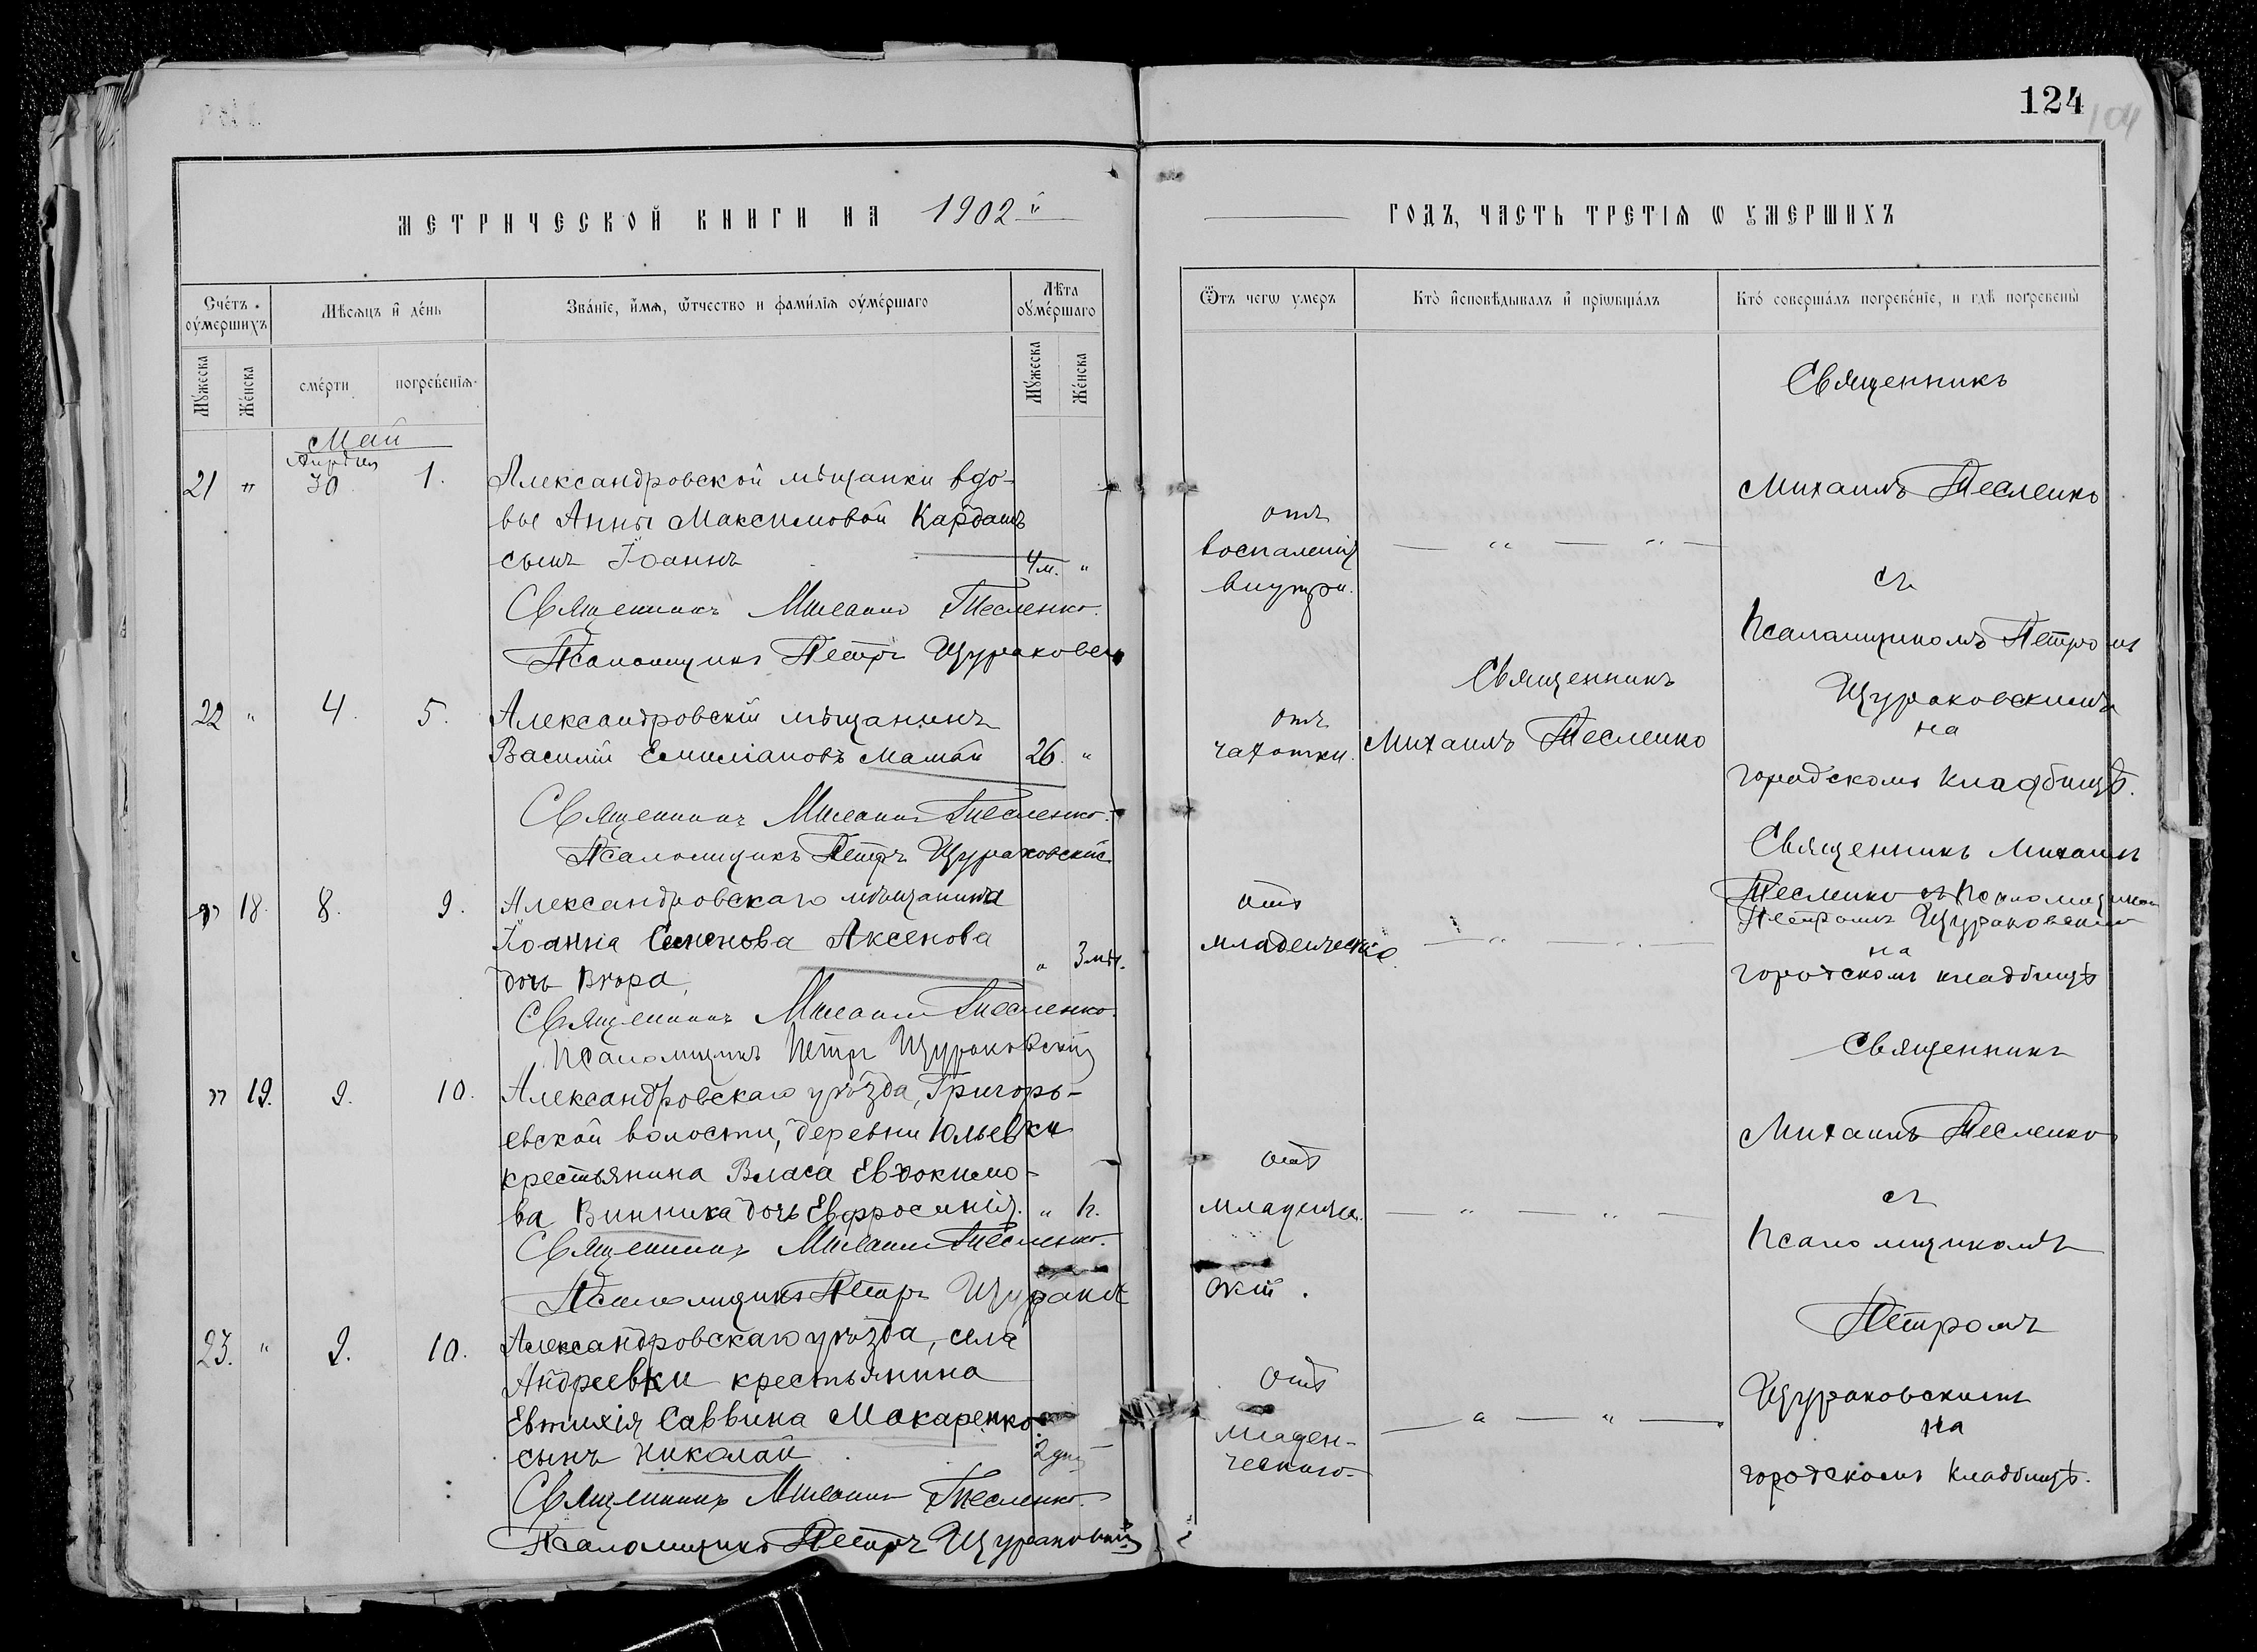 124
104
МЕТРИЧЕСКОЙ КНИГИ НА 1902й
ГОДЪ, ЧАСТЬ ТРЕТІѦ Ѡ ОУМЕРШИХЪ
Счетъ оумершихъ
Мѣсяцъ и день
Званіе, имя, ѿчество и фамилія оумершаго
Лѣта оумершаго
Ѿтъ чегѡ умеръ
Кто исповѣдывалъ и пріѡбщалъ
Кто совершалъ погребеніе, и гдѣ погребены
Мужеска
Женска
смерти
погребенія
Мужеска
Женска
Май
Апрѣля
21 " 30 1.
Александровской мѣщанки вдо-
вы Анны Максимовой Кардашъ
сынъ Іоаннъ 4 м. "
Священникъ Михаилъ Тесленко.
Псаломщикъ Петръ Щураковскій
отъ
воспаленія
внутри.
— " — " —
Священникъ
Михаилъ Тесленко
съ
Псаломщикомъ Петромъ
Щураковскимъ
на
городскомъ кладбищѣ.
22 " 4. 5.
Александровскій мѣщанинъ
Василій Емиліановъ Мамай 26. "
Священникъ Михаилъ Тесленко.
Псаломщикъ Петръ Щураковскій
отъ
чахотки.
Священникъ
Михаилъ Тесленко
" 18. 8. 9.
Александровскаго мѣщанина
Іоанна Семенова Аксенова
дочь Вѣра, " 3 мѣс.
Священникъ Михаилъ Тесленко.
Псаломщикъ Петръ Щураковскій
отъ
младенческой
— " — " —
Священникъ Михаилъ
Тесленко съ Псаломщикомъ
Петромъ Щураковскимъ
на
городскомъ кладбищѣ
" 19. 9. 10.
Александровскаго уѣзда, Григорь-
евской волости, деревни Юльевки
крестьянина Власа Евдокимо-
ва Винника дочь Евфросинія. "
Священникъ Михаилъ Тесленко.
Псаломщикъ Петръ Щураковскій.
отъ
младенч.
— " — " —
Священникъ
Михаилъ Тесленко
съ
Псаломщикомъ
Петромъ
Щураковскимъ
на
городскомъ кладбищѣ.
23. " 9. 10.
Александровскаго уѣзда, села
Андреевки крестьянина
Евтихія Саввина Макаренко
сынъ Николай 2 дня —
Священникъ Михаилъ Тесленко.
Псаломщикъ Петръ Щураковскій
отъ
младен-
ческаго.
— " — " —